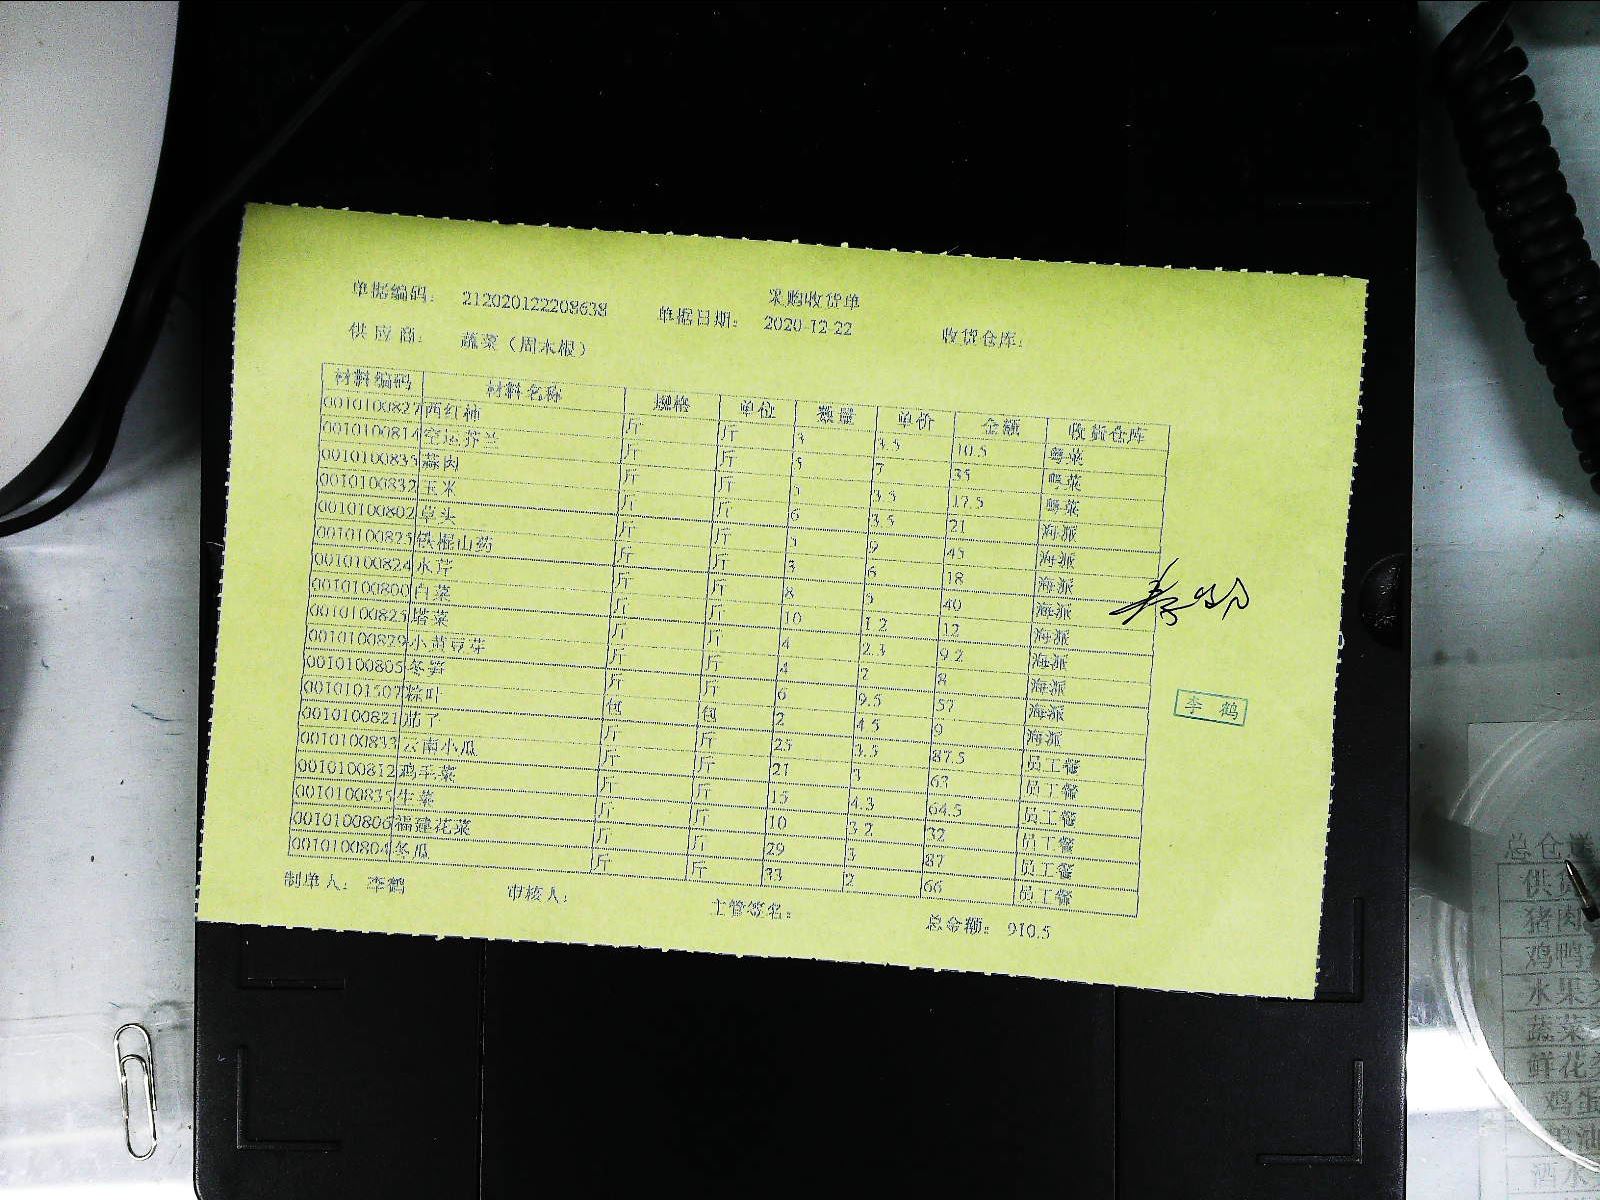 采购收货单
单据编码： 212020122208638 单据日期： 2020-12-22 收货仓库：
供应商： 蔬菜（周木根）
材料编码 材料名称 规格 单位 数量 单价 金额 收货仓库
0010100827 西红柿 斤 斤 3 3.5 10.5 粤菜
0010100814 空运芥兰 斤 斤 5 7 35 粤菜
0010100835 蒜肉 斤 斤 5 3.5 17.5 粤菜
0010100832 玉米 斤 斤 6 3.5 21 海派
0010100802 草头 斤 斤 5 9 45 海派
0010100825 铁棍山药 斤 斤 3 6 18 海派
0010100824 水芹 斤 斤 8 5 40 海派
0010100800 白菜 斤 斤 10 1.2 12 海派
0010100825 塔菜 斤 斤 4 2.3 9.2 海派
0010100829 小黄豆芽 斤 斤 4 2 8 海派
0010100805 冬笋 斤 斤 6 9.5 57 海派
0010101507 粽叶 包 包 2 4.5 9 海派
0010100821 茄子 斤 斤 25 3.5 87.5 员工餐
0010100833 云南小瓜 斤 斤 21 3 63 员工餐
0010100812 鸡毛菜 斤 斤 15 4.3 64.5 员工餐
0010100835 生菜 斤 斤 10 3.2 32 员工餐
0010100806 福建花菜 斤 斤 29 3 87 员工餐
0010100804 冬瓜 斤 斤 33 2 66 员工餐
制单人： 李鹤 审核人： 主管签名： 总金额： 910.5
李鹤
总仓
供货
猪肉
鸡鸭
水果
蔬菜
鲜花
鸡蛋
酒水